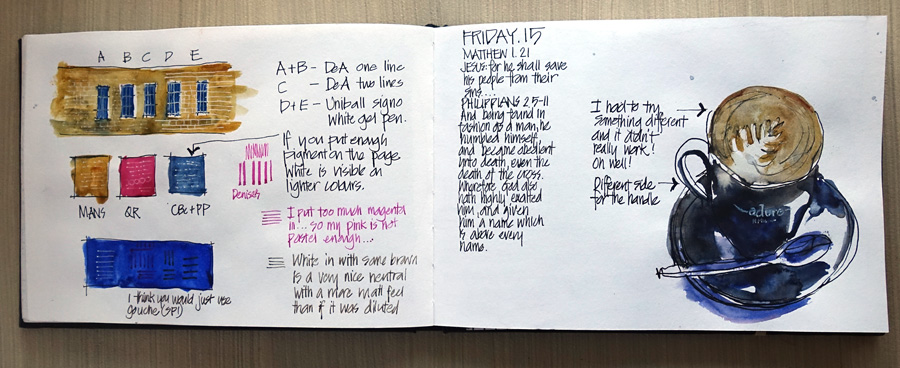 A B C D E
A+B - DeA one line
C - DeA two lines
D+E - Uniball signo
White gel pen.
If you put enough
pigment on the page
White is visible on
lighter colours.
MANS
QR
CBL+PP
Denises
I put too much magenta
in... so my pink is not
pastel enough...
White in with some brown
is a very nice neutral
with a more matt feel
than if it was diluted
I think you would just use
gouache (SP!)
FRIDAY.15
MATTHEW 1. 21
JESUS: for he shall save
his people from their
sins...
PHILIPPIANS 2.5-11
And being found in
fashion as a man, he
humbled himself,
and became obedient
unto death, even the
death of the cross.
Wherefore God also
hath highly exalted
him, and given
him a name which
is above every
name.
I had to try
something different
and it didn't
really work!
Oh well!
Different side
for the handle
adure